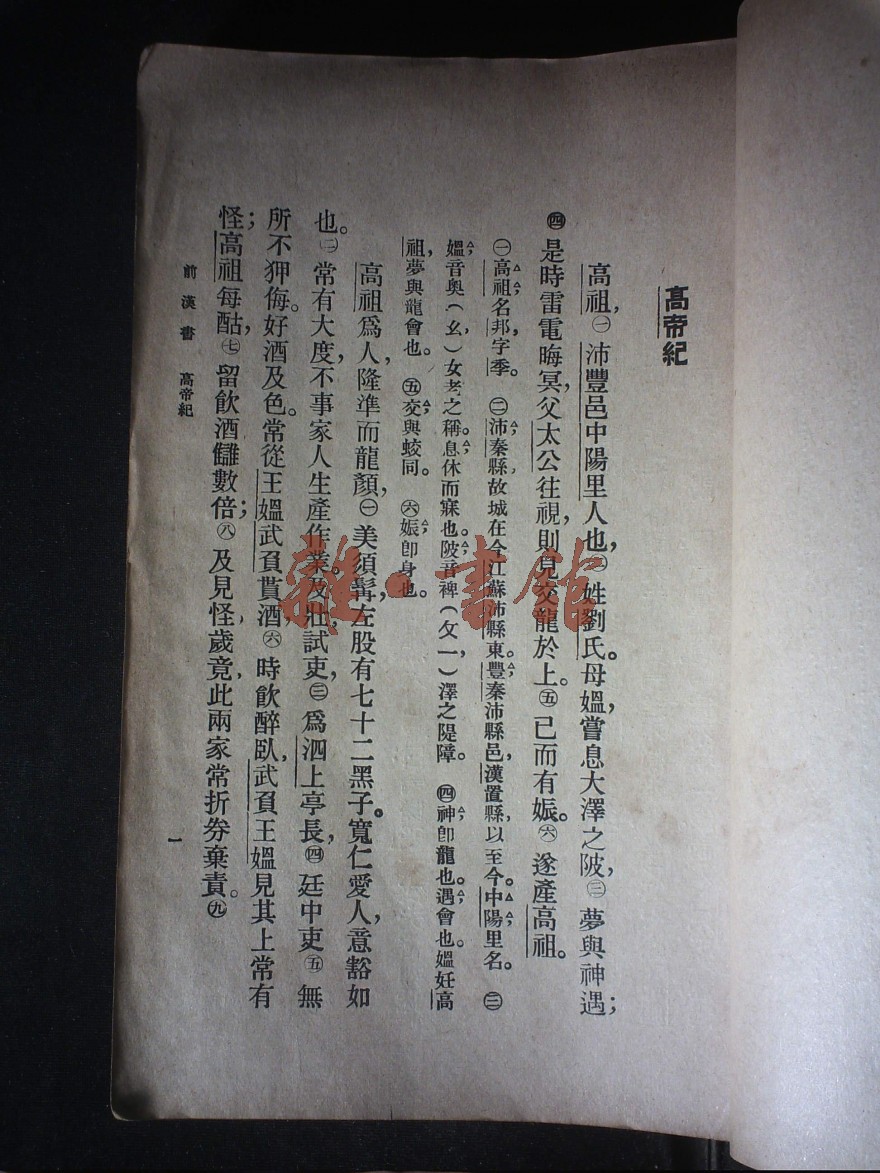 高帝紀
高祖，㊀沛豐邑中陽里人也，㊁姓劉氏。母媼，嘗息大澤之陂，㊂夢與神遇；
㊃是時雷電晦冥，父太公往視，則見交龍於上。㊄已而有娠。㊅遂產高祖。
㊀高祖名邦，字季。㊁沛，秦縣，故城在今江蘇沛縣東。豐，秦沛縣邑，漢置縣，以至今。中陽，里名。㊂
媼音奧（ㄠ，）女老之稱。息，休而寐也。陂音裨（ㄆㄧ，）澤之隄障。㊃神，卽龍也。遇，會也。媼妊高
祖，夢與龍會也。㊄交，與蛟同。㊅娠，卽身也。
高祖爲人，隆準而龍顏，㊀美須髯，左股有七十二黑子。寬仁愛人，意豁如
也。㊁常有大度，不事家人生產作業。及壯，試吏，㊂爲泗上亭長，㊃廷中吏㊄無
所不狎侮。好酒及色。常從王媼武負貰酒，㊅時飲醉臥，武負王媼見其上常有
怪；高祖每酤，㊆留飲酒讎數倍；㊇及見怪，歲竟，此兩家常折券棄責。㊈
前漢書 高帝紀
一
雜·書館